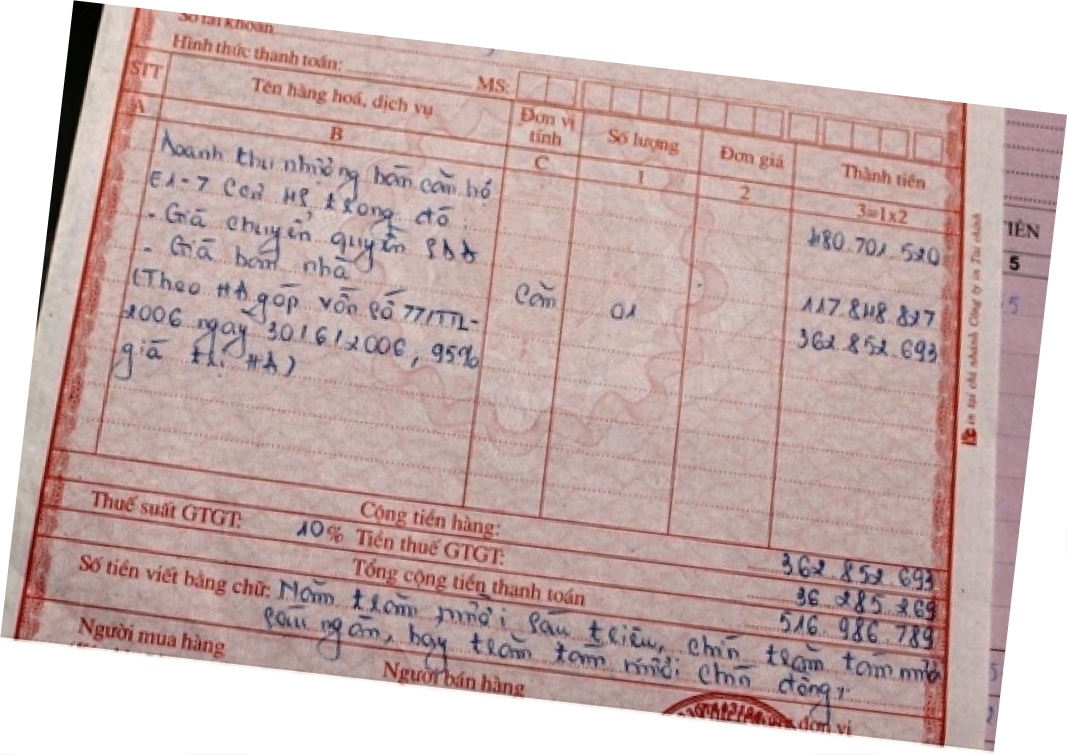 Số tài khoản
Hình thức thanh toán: MS:
STT Tên hàng hoá, dịch vụ Đơn vị tính Số lượng Đơn giá Thành tiền
A B C 1 2 3=1x2
Doanh thu nhượng bán căn hộ 480.701.520
E1-7 trong đó:
- Giá chuyển quyền SDĐ 117.848.827
- Giá bán nhà Căn 01 362.852.693
(Theo HĐ góp vốn số 77/TTL-
2006 ngày 30/6/2006, 95%
giá trị HĐ)
Cộng tiền hàng: 362.852.693
Thuế suất GTGT: 10% Tiền thuế GTGT: 36.285.269
Tổng cộng tiền thanh toán 516.986.789
Số tiền viết bằng chữ: Năm trăm mười sáu triệu, chín trăm tám mươi
sáu ngàn, bảy trăm tám mươi chín đồng
Người mua hàng Người bán hàng đơn vị
in tại chi nhánh Công ty in Tài chính
TIỀN
5